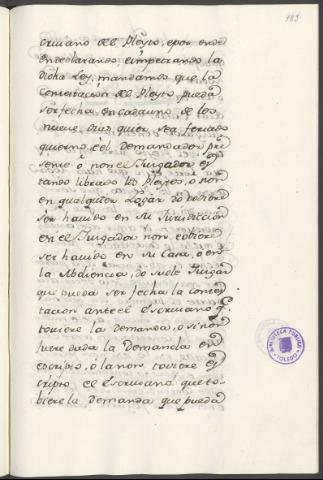 103
crivano del Pleyto, epor ende
endeclarando, eimpetrando la
dicha Ley, mandamos que la
Contestacion del Pleyto pueda
ser fecha en cada uno, de los
nueve dias, quier sea feriado
quier no, è el demandador pre
sente ó non el Juzgador es
tando librado los Pleytos, o non
en qualquier Logar do pobiere
ser havido en su Jurisdiccion
en el Juzgador non pobiere
ser havido en su Casa, o en
la Abdiencia, do suele Juzgar
que pueda ser fecha la contes
tacion ante el escrivano q.e
toviere la demanda, o si non
fuere dada la Demanda en
escripto, ó la non toviere es
cripto el escrivano que to-
biere la demanda que pueda
BIBLIOTECA PUBLICA
TOLEDO